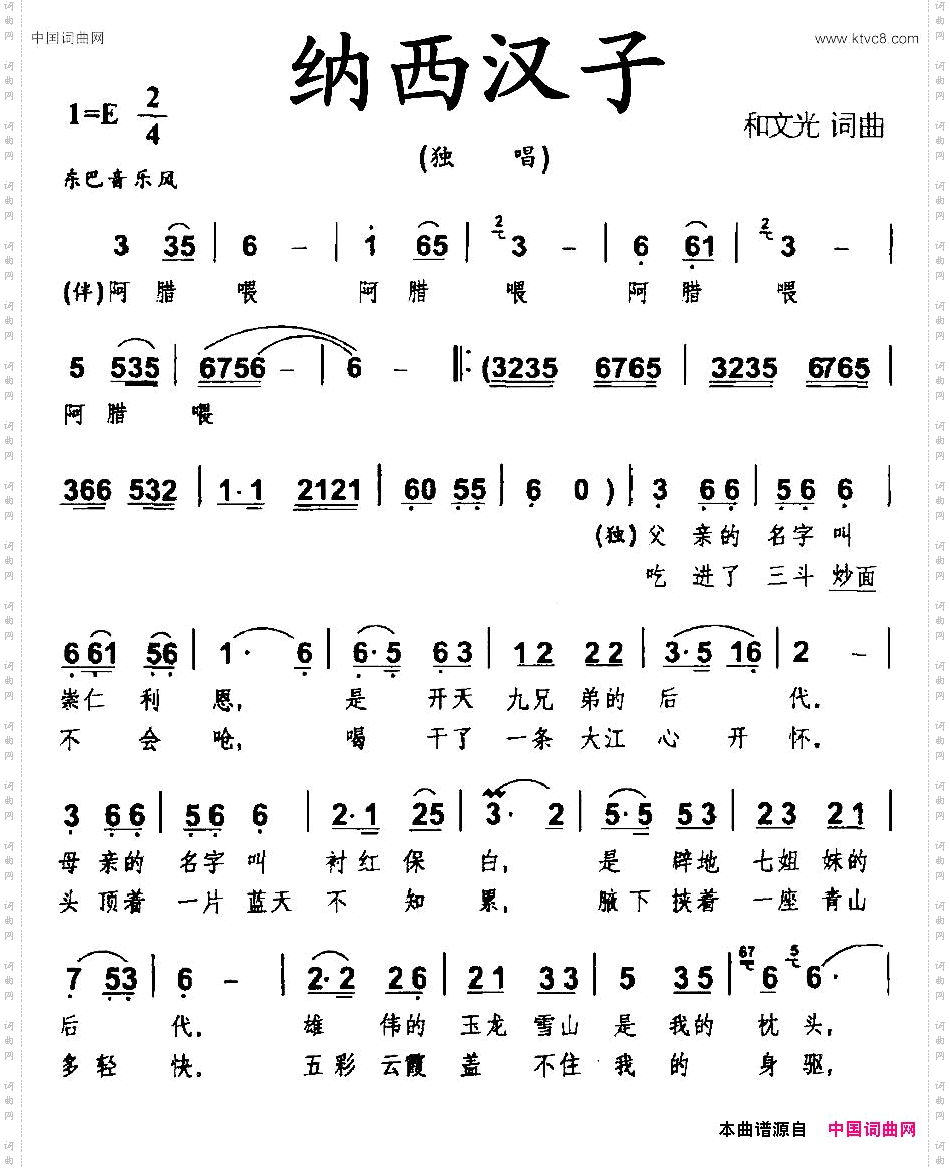 中国词曲网
www.ktvc8.com
纳西汉子
1=E 2/4
和文光 词曲
(独 唱)
东巴音乐风
3 35 | 6 – | 1 65 | 2 3 – | 6 61 | 2 3 – |
(伴)阿 腊 喂 阿 腊 喂 阿 腊 喂
5 535 | 6756 – | 6 – ‖: (3235 6765 | 3235 6765 |
阿 腊 喂
366 532 | 1·1 2121 | 60 55 | 6 0 ) | 3 66 | 56 6 |
(独)父 亲的 名字 叫
吃 进了 三斗 炒面
6 61 56 | 1· 6 | 6·5 63 | 12 22 | 3·5 16 | 2 – |
崇仁 利 恩, 是 开天 九兄 弟的 后 代.
不 会 呛, 喝 干了 一条 大江 心 开 怀.
3 66 | 56 6 | 2·1 25 | 3· 2 | 5·5 53 | 23 21 |
母 亲的 名字 叫 衬红 保 白, 是 辟地 七姐 妹的
头 顶着 一片 蓝天 不 知 累, 腋下 挟着 一座 青山
7 53 | 6 – | 2·2 26 | 21 33 | 5 35 | 67 6 5 6· |
后 代. 雄 伟的 玉龙 雪山 是 我的 枕 头,
多 轻 快. 五彩 云霞 盖 不住 我 的 身 驱,
本曲谱源自 中国词曲网
词曲网